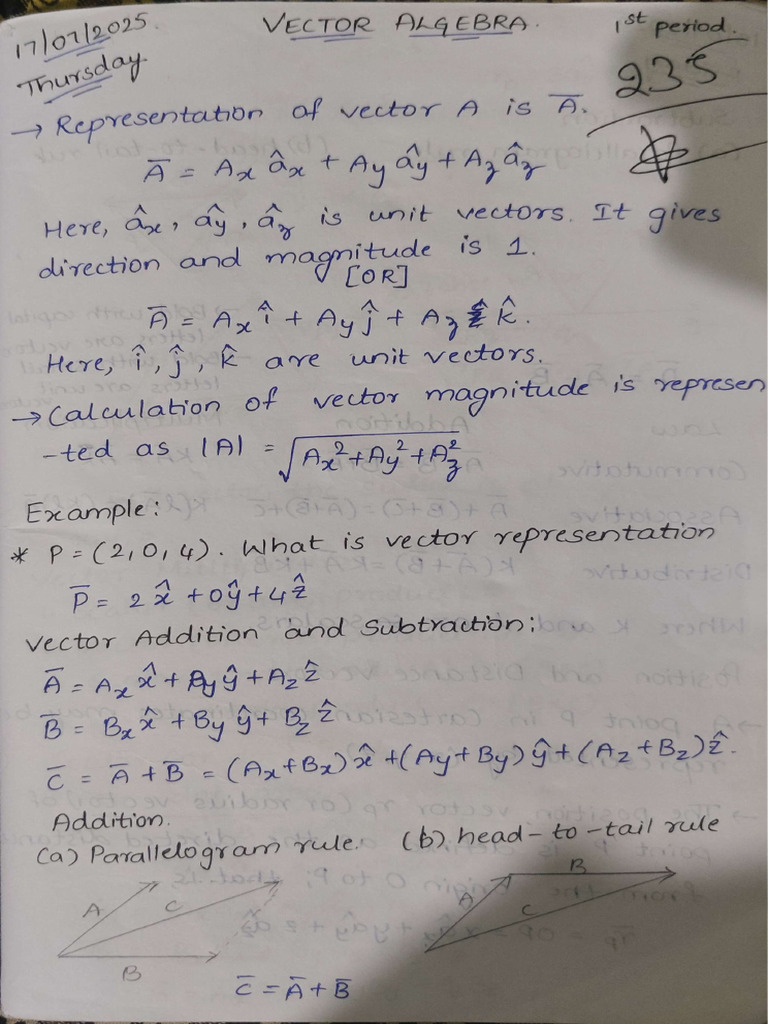 17/07/2025 VECTOR ALGEBRA. 1st period.
Thursday 235
→ Representation of vector A is A̅.
A̅ = Ax âx + Ay ây + Az âz
Here, âx, ây, âz is unit vectors. It gives
direction and magnitude is 1.
[OR]
A̅ = Ax î + Ay ĵ + Az k̂.
Here, î, ĵ, k̂ are unit vectors.
→ Calculation of vector magnitude is represen
-ted as |A| = √(Ax² + Ay² + Az²)
Example:
* P = (2, 0, 4). What is vector representation
P̅ = 2 x̂ + 0 ŷ + 4 ẑ
Vector Addition and Subtraction:
A̅ = Ax x̂ + Ay ŷ + Az ẑ
B̅ = Bx x̂ + By ŷ + Bz ẑ
C̅ = A̅ + B̅ = (Ax+Bx) x̂ + (Ay+By) ŷ + (Az+Bz) ẑ.
Addition.
(a) Parallelogram rule. (b) head-to-tail rule
A C B
B A C
C̅ = A̅ + B̅